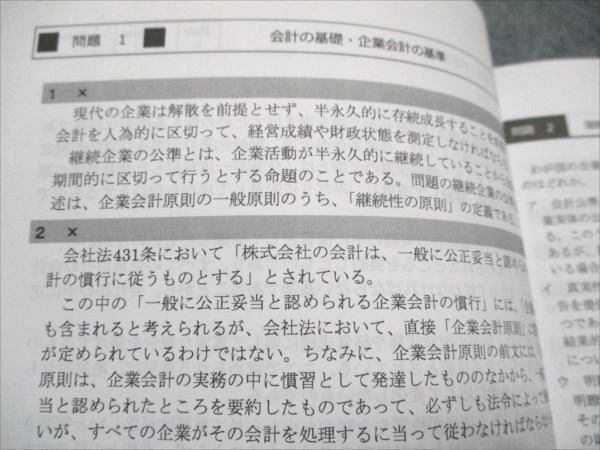 問題 1
会計の基礎・企業会計の基準
1 ×
現代の企業は解散を前提とせず、半永久的に存続成長することを
会計を人為的に区切って、経営成績や財政状態を測定しなければなら
継続企業の公準とは、企業活動が半永久的に継続していることから
期間的に区切って行うとする命題のことである。問題の継続企業の公
述は、企業会計原則の一般原則のうち、「継続性の原則」の定義である。
2 ×
会社法431条において「株式会社の会計は、一般に公正妥当と認め
計の慣行に従うものとする」とされている。
この中の「一般に公正妥当と認められる企業会計の慣行」には、「企
も含まれると考えられるが、会社法において、直接「企業会計原則」
が定められているわけではない。ちなみに、企業会計原則の前文には、
原則は、企業会計の実務の中に慣習として発達したもののなかから、一
当と認められたところを要約したものであって、必ずしも法令によって
いが、すべての企業がその会計を処理するに当って従わなければなら
問題 2
わが国の企業
のはどれか。
ア 会計公準
業実体の公
る。この
あるが、
いる場合
イ 真実性
告を提
つであ
結果的
につい
ウ 明瞭
明瞭
その